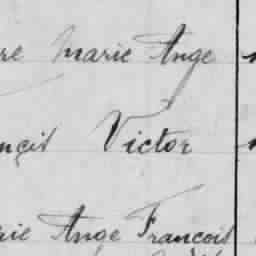 re Marie Ange
nçis Victor
rie Ange François